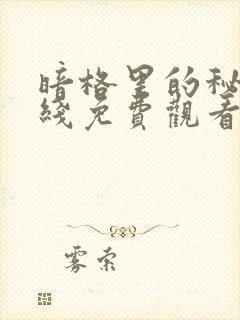 暗格里的秘
綫免費觀看
雾索